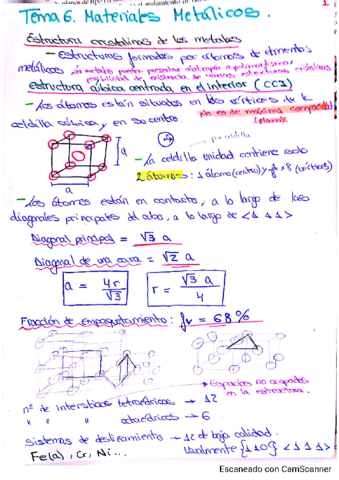 1
Tema 6. Materiales Metálicos.
Estructura cristalinas de los metales
- Estructuras formadas por átomos de elementos
metálicos (Los metales pueden presentar alotropía o polimorfismo:
posibilidad de existencia de varias estructuras cristalinas
Estructura cúbica centrada en el interior (CCI)
- Los átomos están situados en los vértices de la
celdilla cúbica, y en su centro.
no es de máxima compacidad
(planos).
por celdilla
- La celdilla unidad contiene solo
2 átomos: 1 átomo (centro) y 1/8 x 8 (vértices)
a
a
- Los átomos están en contacto, a lo largo de las
diagonales principales del cubo, a lo largo de <1 1 1>
Diagonal principal = √3 a
Diagonal de una cara = √2 a
a = 4r/√3
r = √3 a/4
Fracción de empaquetamiento: fv = 68%
Espacios no ocupados
en la estructura.
nº de intersticios tetraédricos → 12
" " " octaédricos → 6
Sistemas de deslizamiento → 12 de baja calidad.
Usualmente {110} <111>
Fe(α), Cr, Ni...
Escaneado con CamScanner